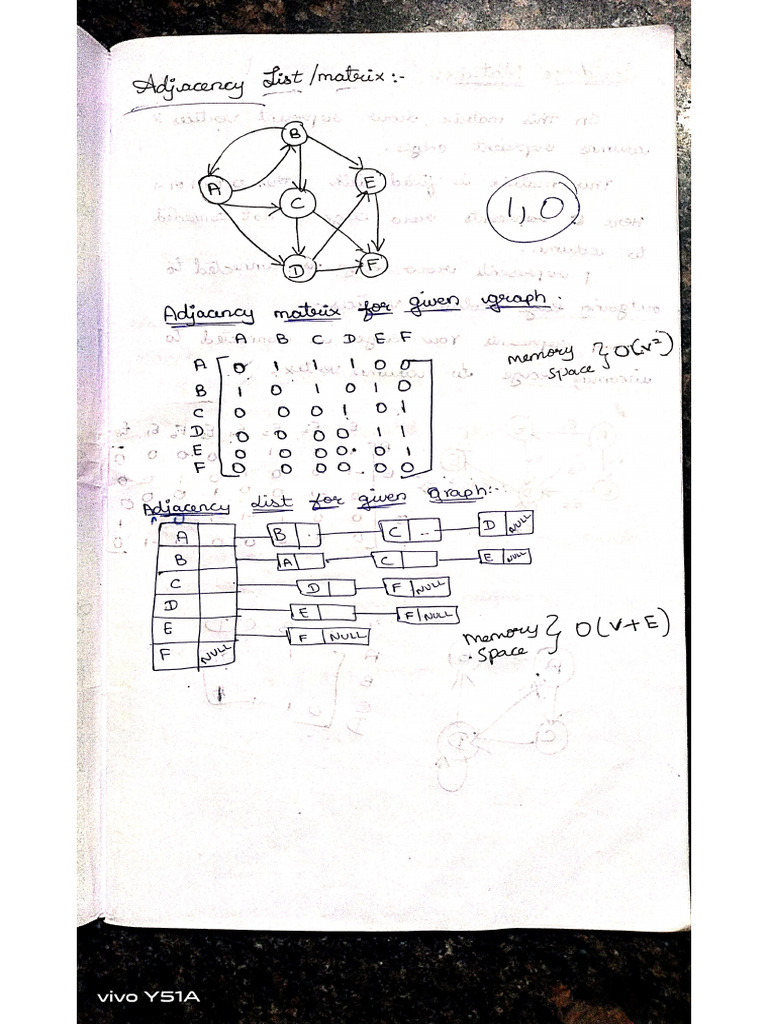 Adjacency List/matrix:-
B
A
E
C
1, 0
D
F
Adjacency matrix for given graph:
A B C D E F
A 0 1 1 1 0 0
B 1 0 1 0 1 0
C 0 0 0 1 0 1
D 0 0 0 0 1 1
E 0 0 0 0 0 1
F 0 0 0 0 0 0
memory space } O(v²)
Adjacency List for given graph:-
A B C D NULL
B A C E NULL
C D F NULL
D E F NULL
E F NULL
F NULL
memory space } O(V+E)
vivo Y51A